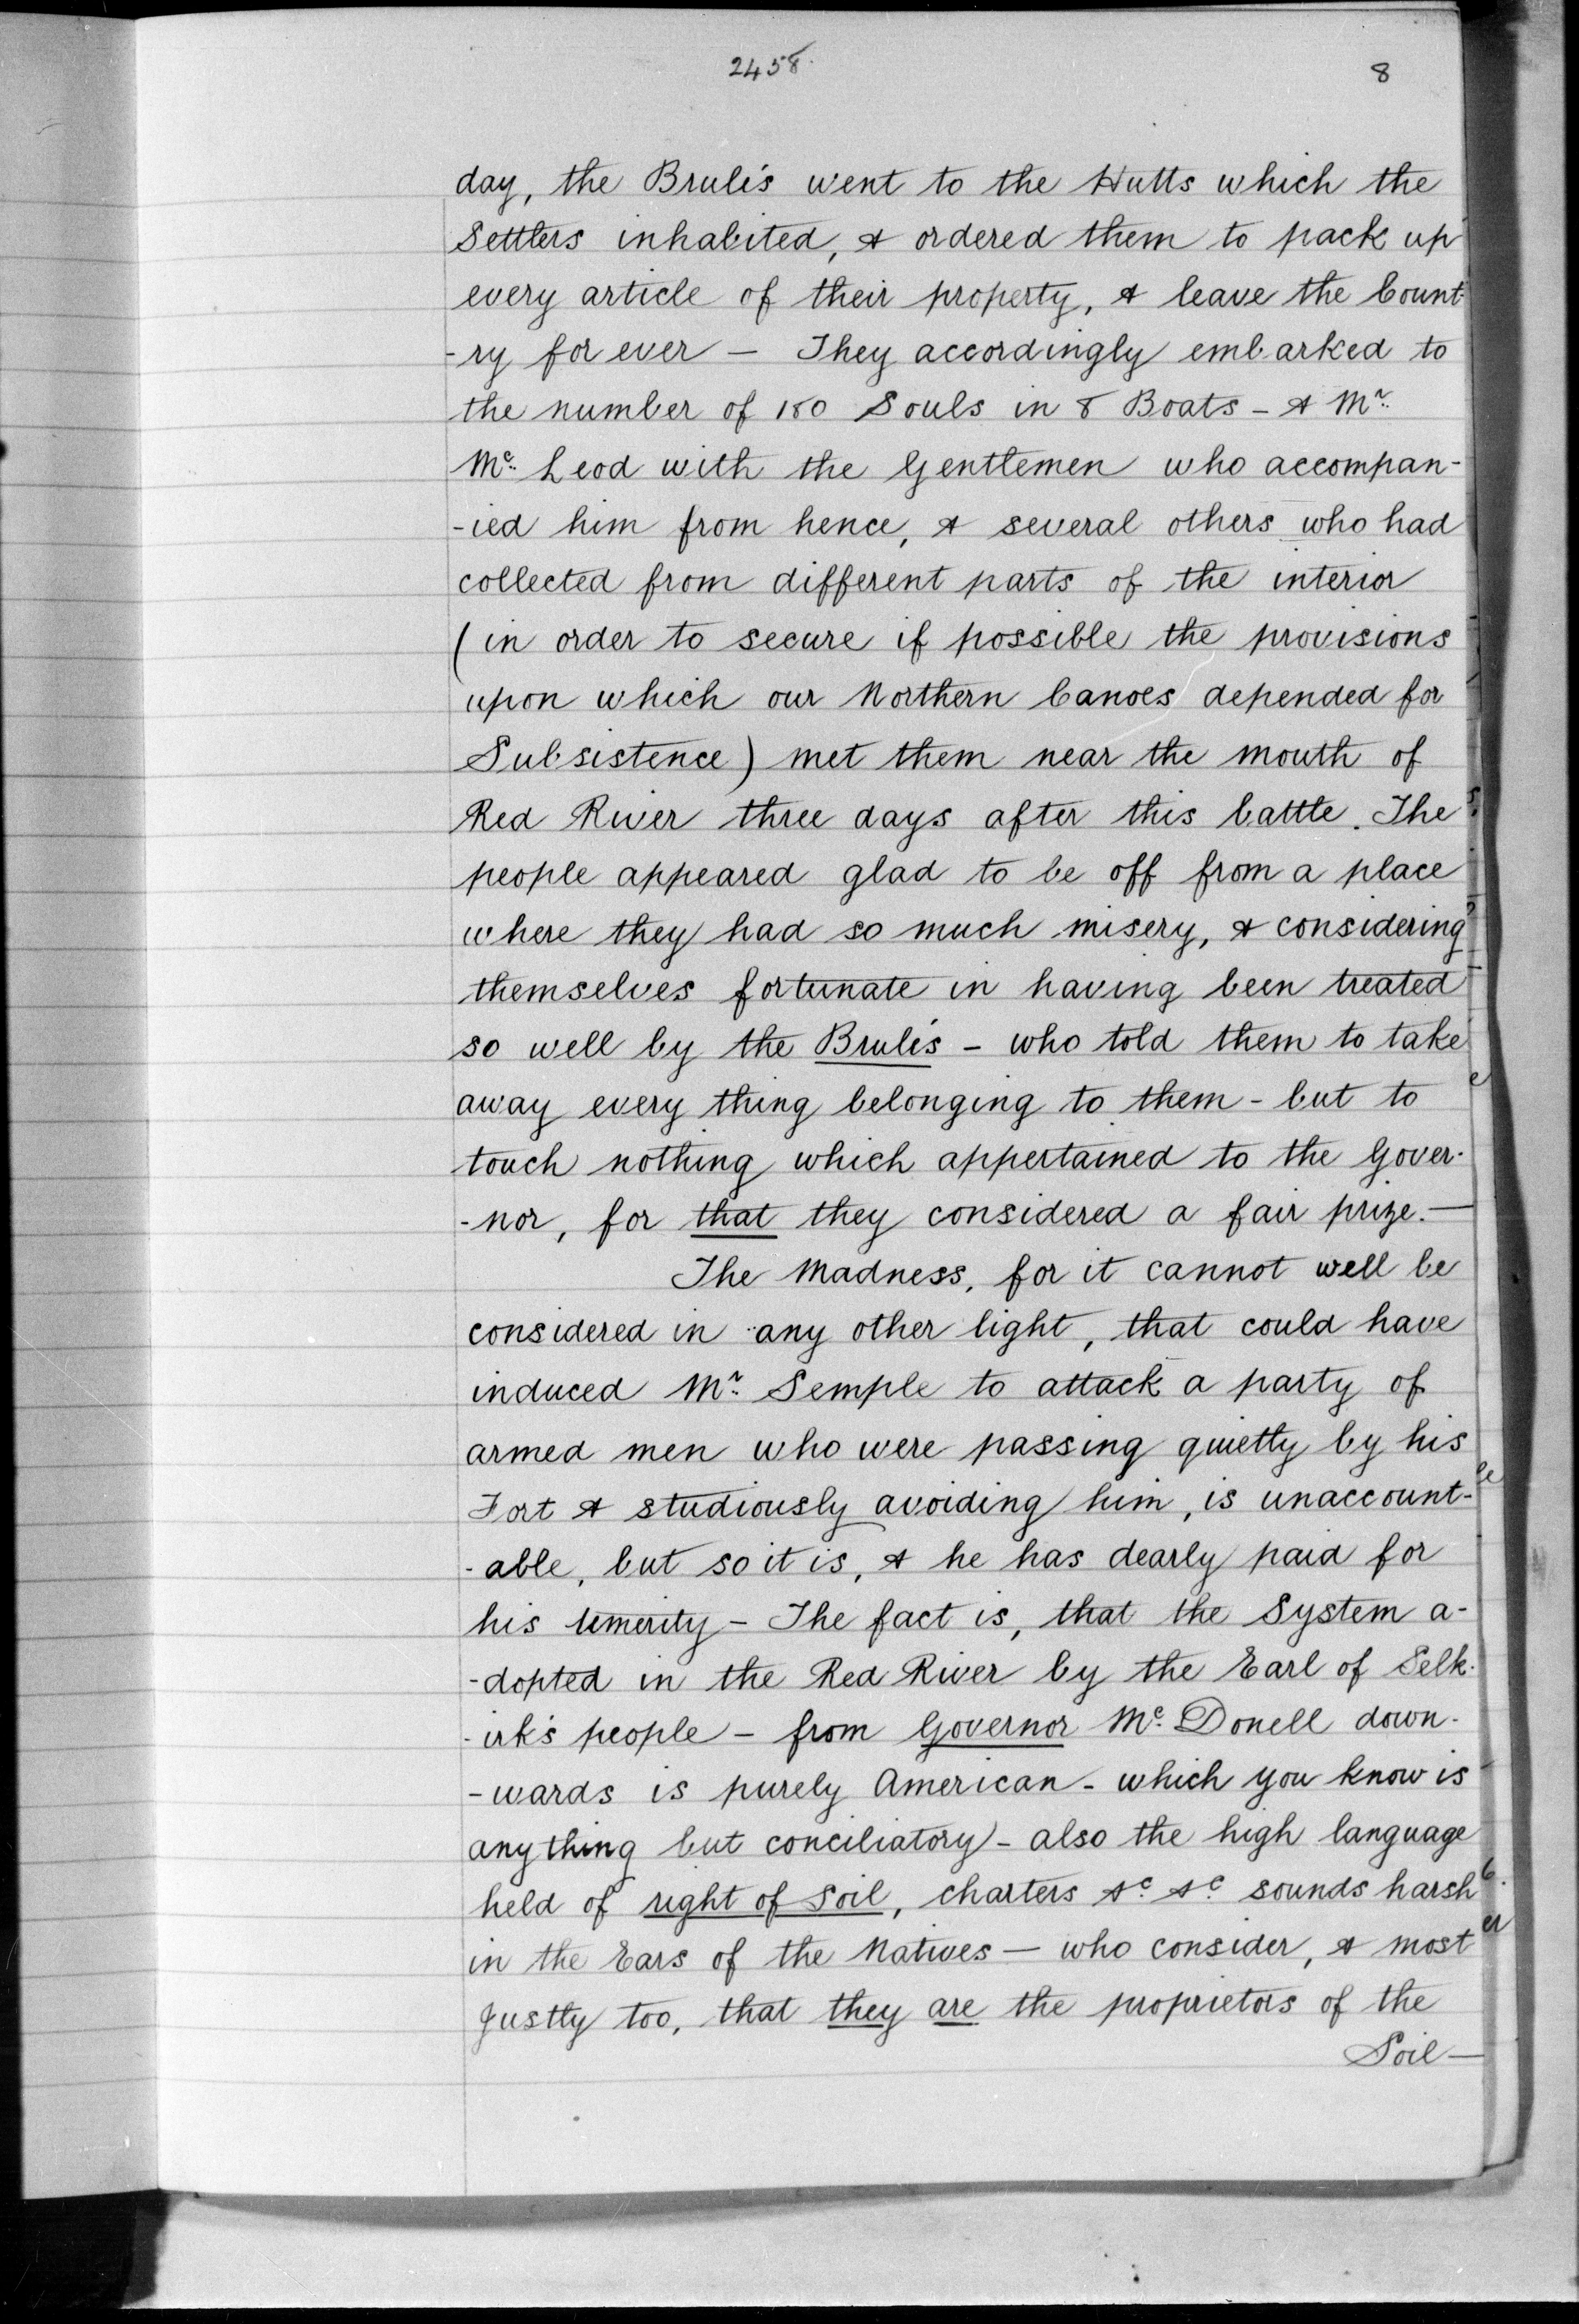 2458.
8
day, the Brulés went to the Hutts which the
Settlers inhabited, & ordered them to pack up
every article of their property, & leave the Count-
-ry for ever — They accordingly embarked to
the number of 180 Souls in 8 Boats - & Mr.
Mc. Leod with the Gentlemen who accompan-
-ied him from hence, & several others who had
collected from different parts of the interior
(in order to secure if possible the provisions
upon which our Northern Canoes depended for
Subsistence) met them near the mouth of
Red River three days after this battle. The
people appeared glad to be off from a place
where they had so much misery, & considering
themselves fortunate in having been treated
so well by the Brulés - who told them to take
away every thing belonging to them - but to
touch nothing which appertained to the Gover-
-nor, for that they considered a fair prize. —
The Madness, for it cannot well be
considered in any other light, that could have
induced Mr. Semple to attack a party of
armed men who were passing quietly by his
Fort & studiously avoiding him, is unaccount-
-able, but so it is, & he has dearly paid for
his temerity - The fact is, that the System a-
-dopted in the Red River by the Earl of Selk-
-irk's people - from Governor Mc. Donell down-
-wards is purely American - which you know is
anything but conciliatory - also the high language
held of right of Soil, charters &c. &c. sounds harsh
in the Ears of the Natives — who consider, & most
justly too, that they are the proprietors of the
Soil —